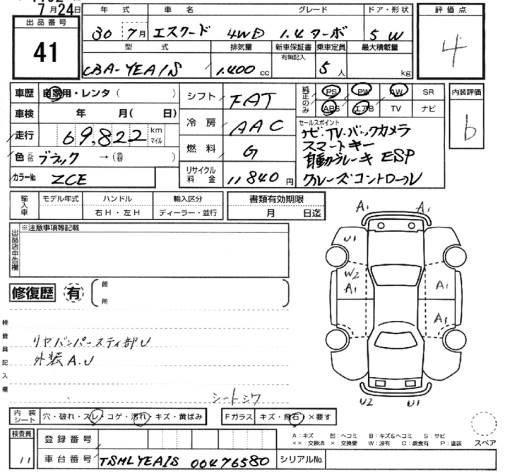 7月24日
出品番号
41
年式 車名 グレード ドア・形状
30年7月 エスクード 4WD 1.4ターボ 5 W
型式 排気量 新車保証書 有無記入 乗車定員 最大積載量
CBA-YEA1S 1,400cc 5人 kg
評価点
4
車歴 自家用・レンタ( )
車検 年 月( 日)
走行 69,822 km マイル
色 ブラック →( )
カラー№ ZCE
シフト FAT
冷房 AAC
燃料 G
リサイクル料金 11840円
純正のみ PS PW AW SR
ABS エアB TV ナビ
セールスポイント
ナビ.TV.バックカメラ
スマートキー
自動ブレーキ ESP
クルーズコントロール
内装評価
b
輸入車 モデル年式 ハンドル 輸入区分
右H・左H ディーラー・並行
書類有効期限
月 日迄
出品店申告欄
※注意事項等記載
修復歴 有
箇所
検査員記入欄
リヤバンパースティ部U
外装A.U
シートシワ
A1
U1
A1
W2
A1
A1
A1
U2
U1
内装シート 穴・破れ・スレ・コゲ・汚れ・キズ・黄ばみ
Fガラス キズ・飛石・×要す
検査員
11
登録番号
車台番号 TSMLYEA1S 00476580 シリアル№
A:キズ U:ヘコミ B:キズ&ヘコミ S:サビ
××:交換済 ×:交換要 W:波有 C:腐食有 P:塗区
スペア